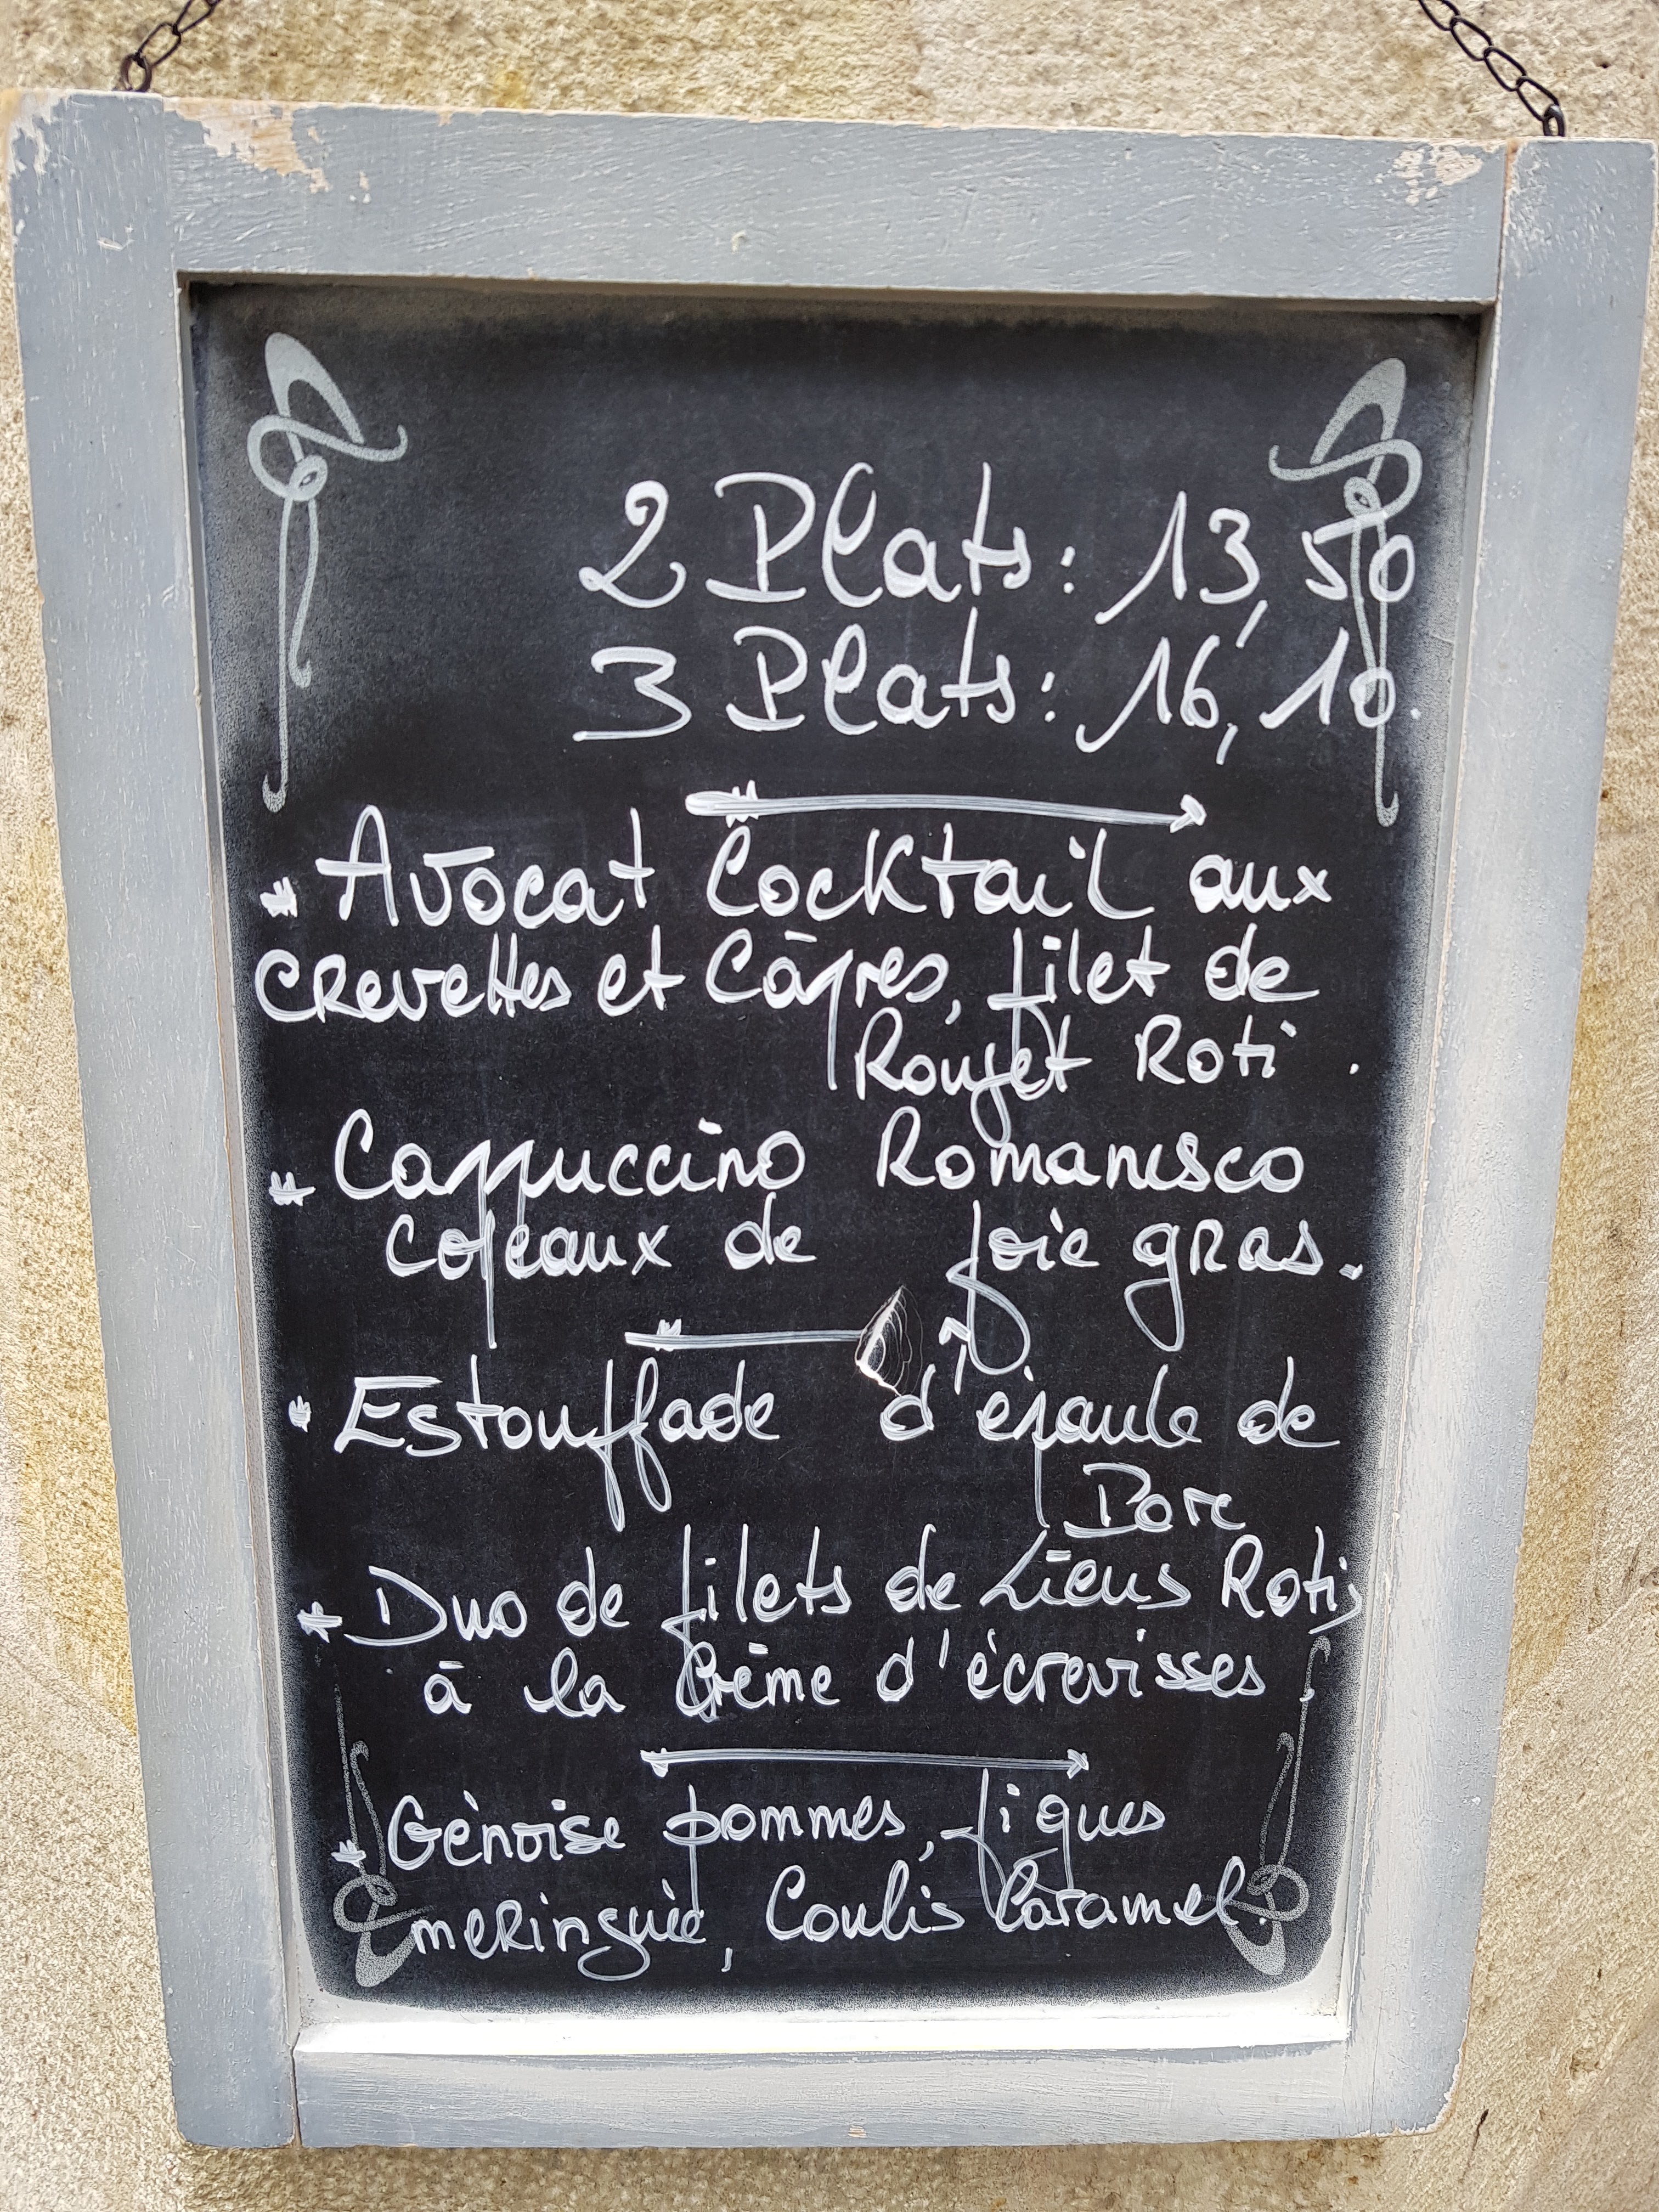 2 Plats: 13,50
3 Plats: 16,10
* Avocat Cocktail aux
crevettes et Câpres, filet de
Rouget Roti.
* Cappuccino Romanesco
Copeaux de foie gras.
* Estouffade d'épaule de
Porc
* Duo de filets de Lieus Rotis
à la Crème d'écrevisses.
* Génoise pommes, figues
meringuée, Coulis Caramel.